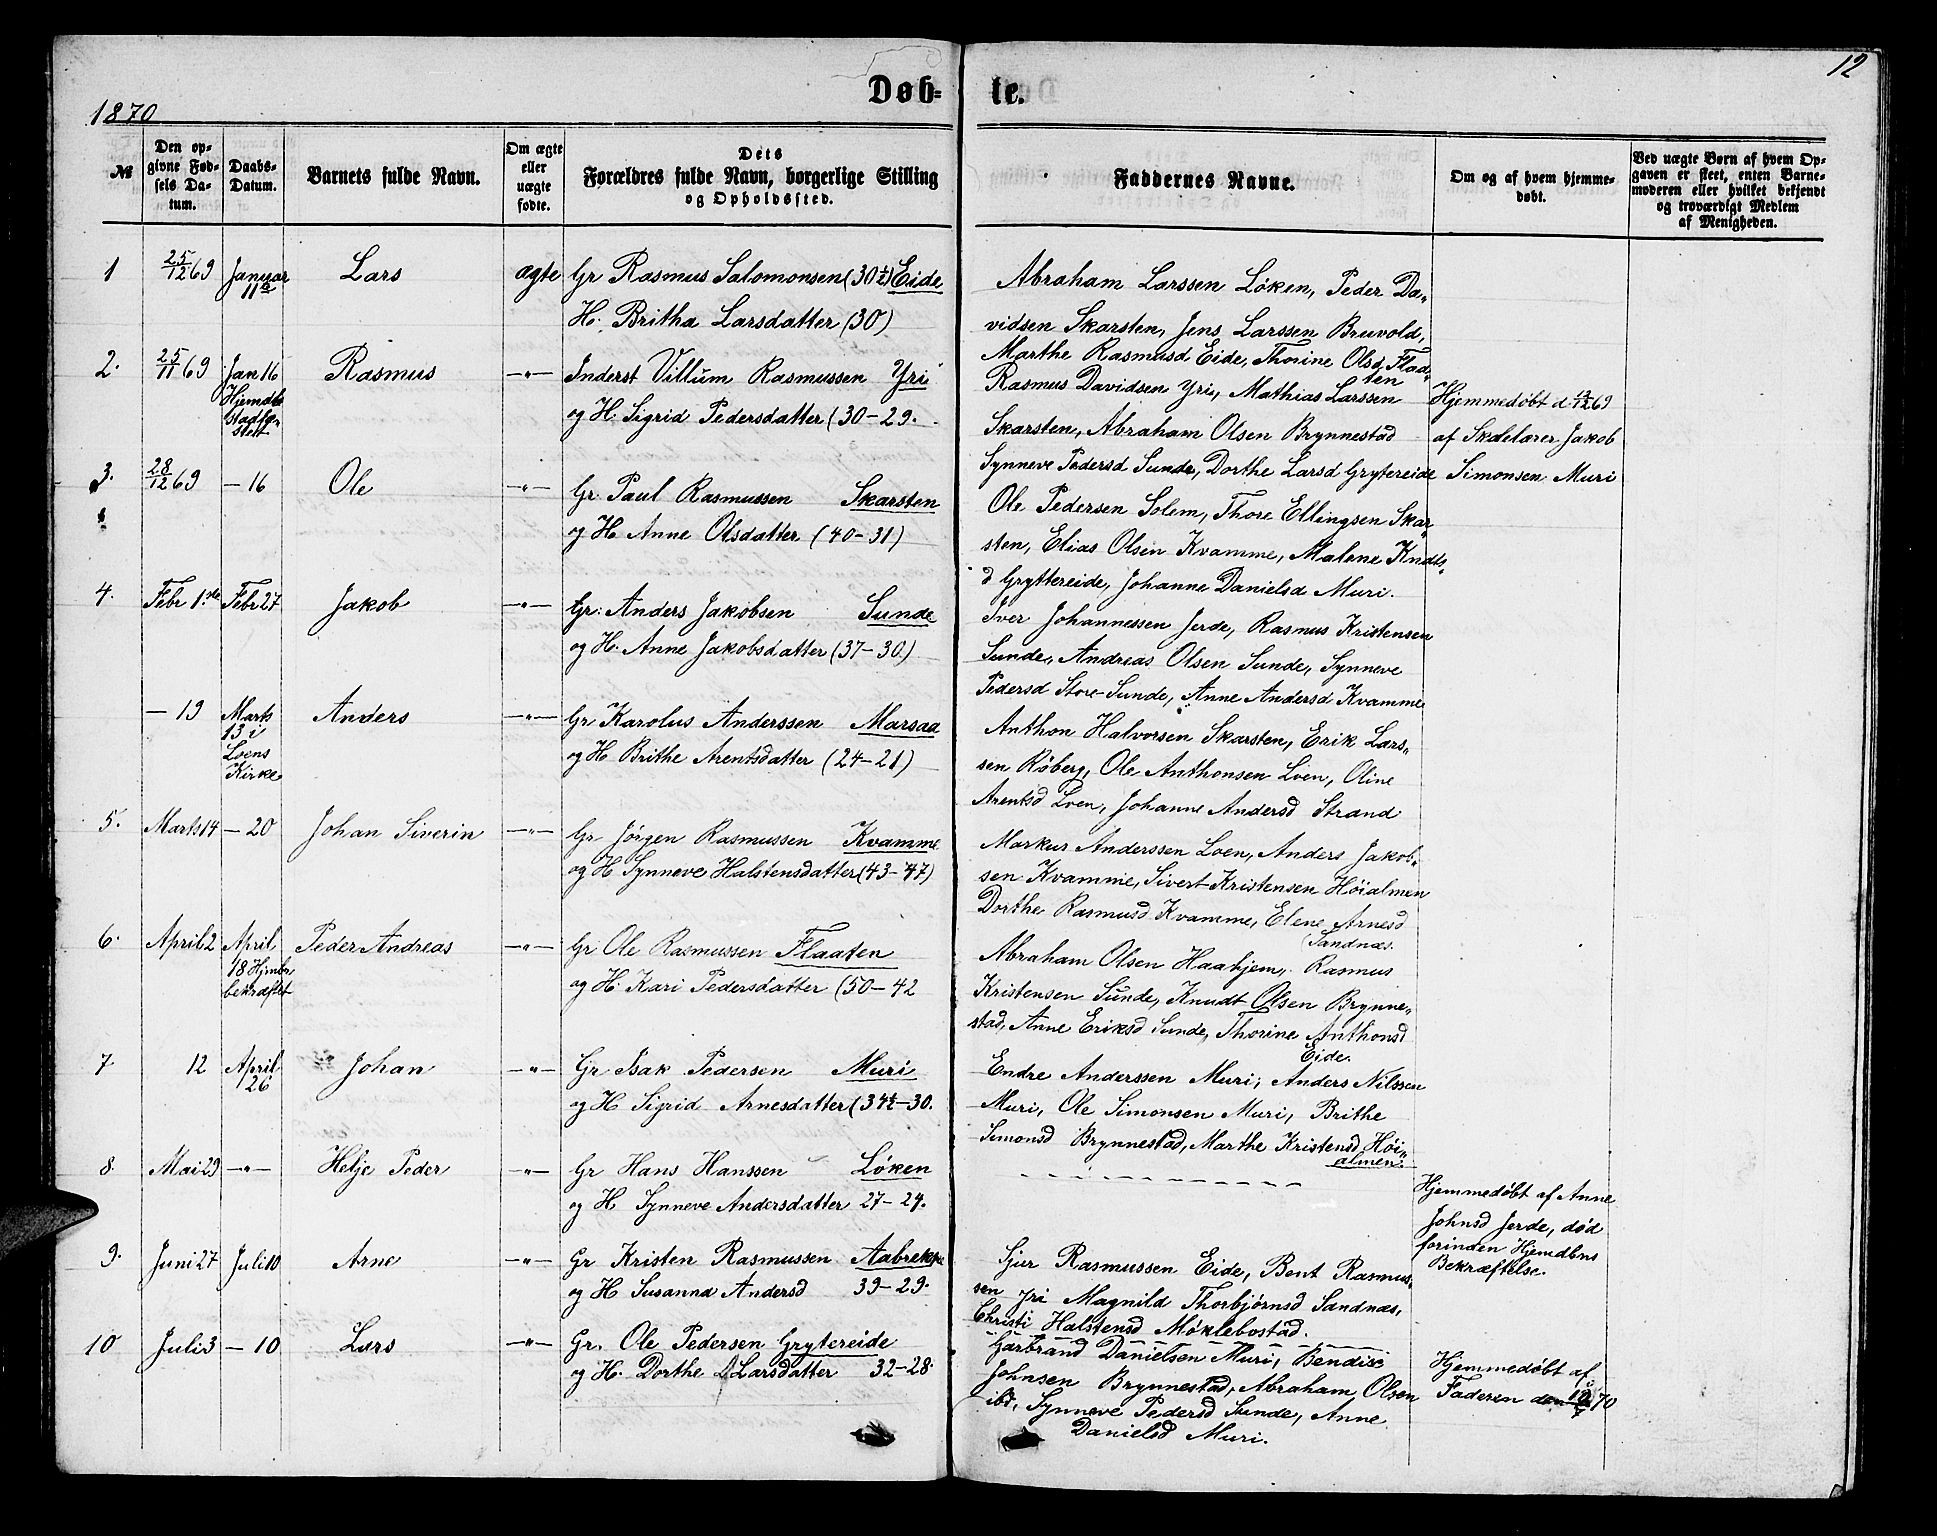 12
1870
Døb-
te.
№
Den op-
givne Fød-
sels Da-
tum.
Daabs-
Datum.
Barnets fulde Navn.
Om ægte
eller
uægte
fødte.
Dets
Forældres fulde Navn, borgerlige Stilling
og Opholdssted.
Faddernes Navne.
Om og af hvem hjemme-
døbt.
Ved uægte Børn af hvem Op-
gaven er skeet, enten Barne-
moderen eller hvilket bekjendt
og troværdigt Medlem
af Menigheden.
1
25/12 69
Januar
11te
Lars
ægte
Gr Rasmus Salomonsen (30½) Eide
H. Britha Larsdatter (30)
Abraham Larssen Løken, Peder Da-
vidsen Skarsten, Jens Larssen Bruvold,
Marthe Rasmusd Eide, Thorine Olsd Flad-
ten
2.
25/11 69
Jan 16
Hjemdb
stadfæ-
stet
Rasmus
-"-
Inderst Villum Rasmussen Yri
og H. Sigrid Pedersdatter (30-29.
Rasmus Davidsen Yri, Mathias Larssen
Skarsten, Abraham Olsen Brynnestad
Synneve Pedersd Sunde, Dorthe Larsd Grytereide
Hjemmedøbt d. /12 69
af Skolelærer Jakob
Simonsen Muri
3.
28/12 69
- 16
Ole
-"-
Gr Paul Rasmussen Skarsten
og H. Anne Olsdatter (40-31)
Ole Pedersen Solem, Thore Ellingsen Skar-
sten, Elias Olsen Kvamme, Malene Knudts-
d Gryttereide, Johanne Danielsd Muri.
4.
Febr 1.ste
Febr 27
Jakob
-"-
Gr. Anders Jakobsen Sunde
og H. Anne Jakobsdatter (37-30.)
Iver Johannessen Jerde, Rasmus Kristensen
Sunde, Andreas Olsen Sunde, Synneve
Pedersd Store-Sunde, Anne Andersd Kvamme
- 19
Marts
13 i
Loens
Kirke
Anders
-"-
Gr Karolus Anderssen Marsaa
og H Brithe Arentsdatter (24-21)
Anthon Halvorsen Skarsten, Erik Lars-
sen Røberg, Ole Anthonsen Loen, Oline
Arentsd Loen, Johanne Andersd Strand
5.
Marts 14
- 20
Johan Siverin
-"-
Gr Jørgen Rasmussen Kvamme
og H. Synneve Halstensdatter (43-47)
Markus Anderssen Loen, Anders Jakob-
sen Kvamme, Sivert Kristensen Høialmen
Dorthe Rasmusd Kvamme, Elene Arnesd
Sandnæs.
6.
April 2
April
18 Hjmdb
bekræftet
Peder Andreas
-"-
Gr Ole Rasmussen Flaaten
og H. Kari Pedersdatter (50-42
Abraham Olsen Haahjem, Rasmus
Kristensen Sunde, Knudt Olsen Brynne-
stad, Anne Eriksd Sunde, Thorine Anthonsd
Eide.
7
12
April
26
Johan
-"-
Gr Isak Pedersen Muri
og H Sigrid Arnesdatter (34½-30.
Endre Anderssen Muri, Anders Nilssen
Muri, Ole Simonsen Muri, Brithe
Simonsd Brynnestad, Marthe Kristensd Høi-
almen.
8.
Mai 29
-"-
Helje Peder
-"-
Gr Hans Hanssen Løken
og H Synneve Andersdatter 27-24.
Hjemmedøbt af Anne
Johnsd Jerde, død
forinden Hjemdbns
Bekræftelse.
9.
Juni 27
Juli 10
Arne
-"-
Gr Kristen Rasmussen Aabrekke
og H Susanna Andersd 39-29.
Sjur Rasmussen Eide, Bent Rasmus-
sen Yri Magnild Thorbjørnsd Sandnæs,
Christi Halstensd Møklebostad.
10
Juli 3
- 10
Lars
-"-
Gr. Ole Pedersen Grytereide
og H. Dorthe Larsdatter 32-28.
Garbrand Danielsen Muri, Bendix
Johnsen Brynnestad, Abraham Olsen
ibd, Synneve Pedersd Sunde, Anne
Danielsd Muri.
Hjemmedøbt af
Faderen den 70